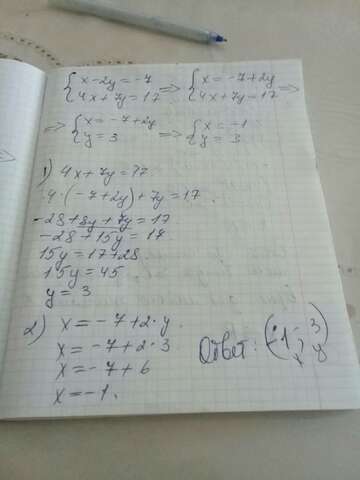 {x-2y=-7 => {x=-7+2y =>
{4x+7y=17 {4x+7y=17
=> {x=-7+2y => {x=-1
{y=3 {y=3
1) 4x+7y=17
4·(-7+2y)+7y=17.
-28+8y+7y=17
-28+15y=17
15y=17+28.
15y=45
y=3
2) x=-7+2·y
x=-7+2·3
x=-7+6
x=-1.
Ответ: (-1; 3)
x y